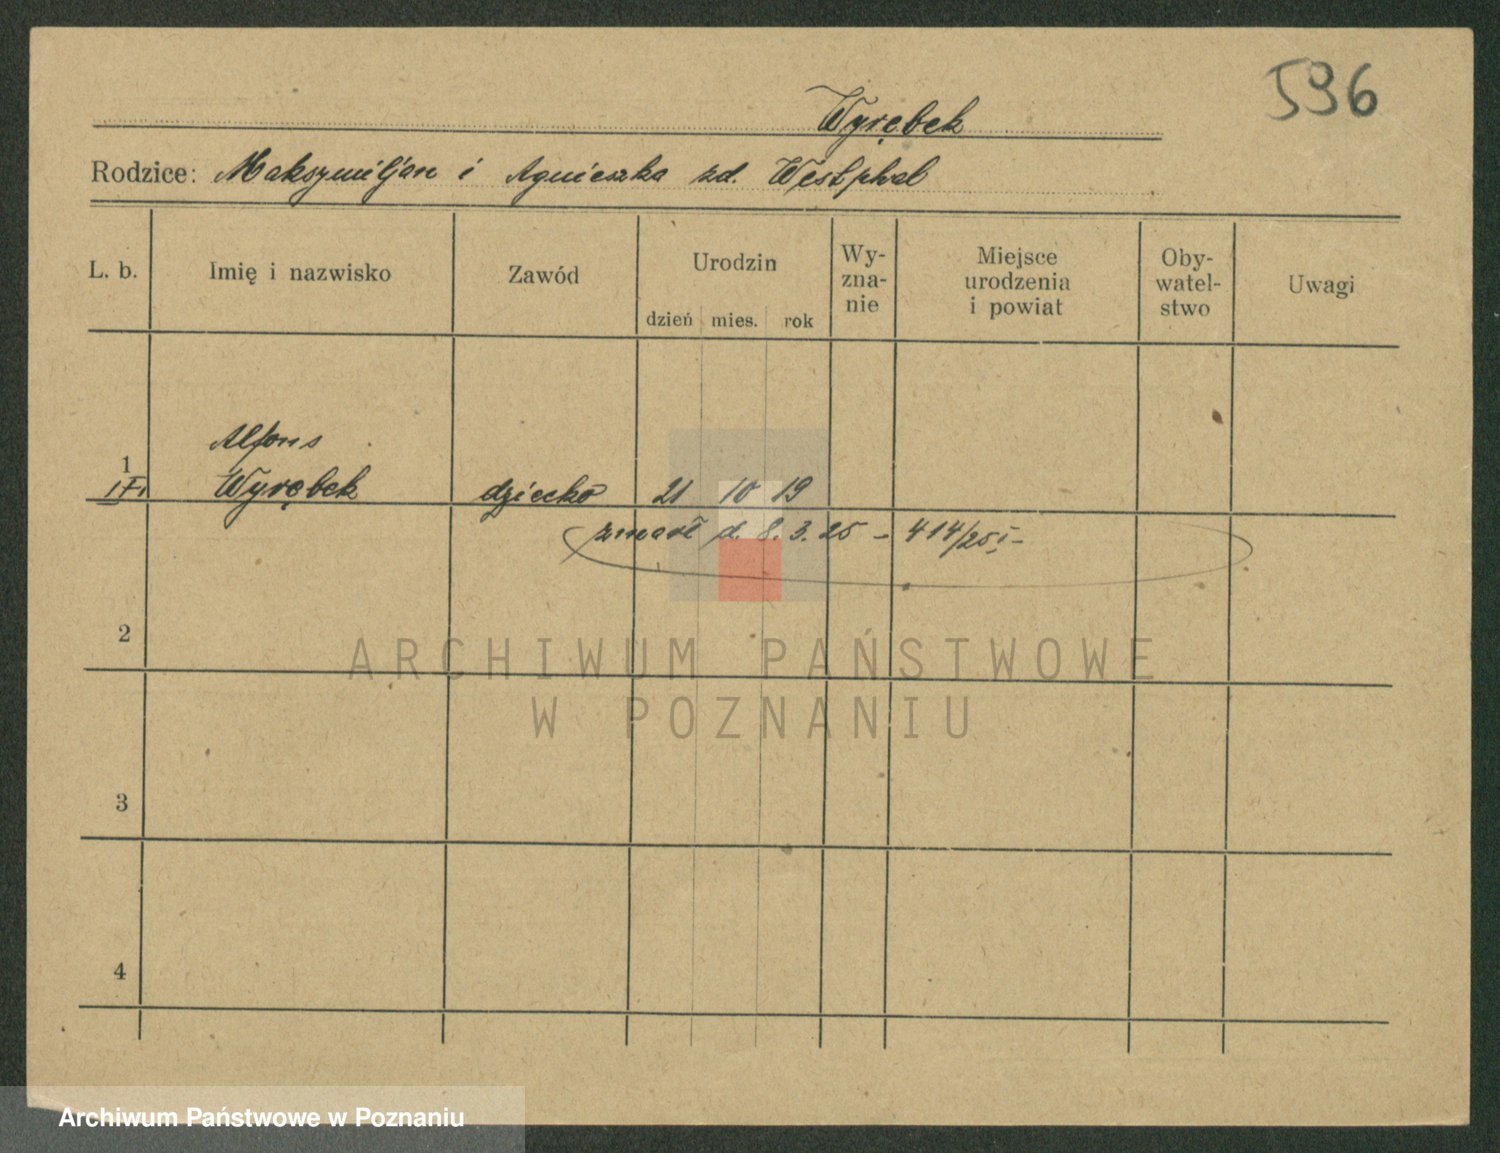 596
Wyrębek
Rodzice: Maksymiljan i Agnieszka zd. Westphal
L. b. Imię i nazwisko Zawód Urodzin dzień mies. rok Wy-zna-nie Miejsce urodzenia i powiat Oby-watel-stwo Uwagi
Alfons
1
IFi Wyrębek dziecko 21 10 19
zmarł d. 8. 3. 25 – 414/25 I –
2
ARCHIWUM PAŃSTWOWE
W POZNANIU
3
4
Archiwum Państwowe w Poznaniu